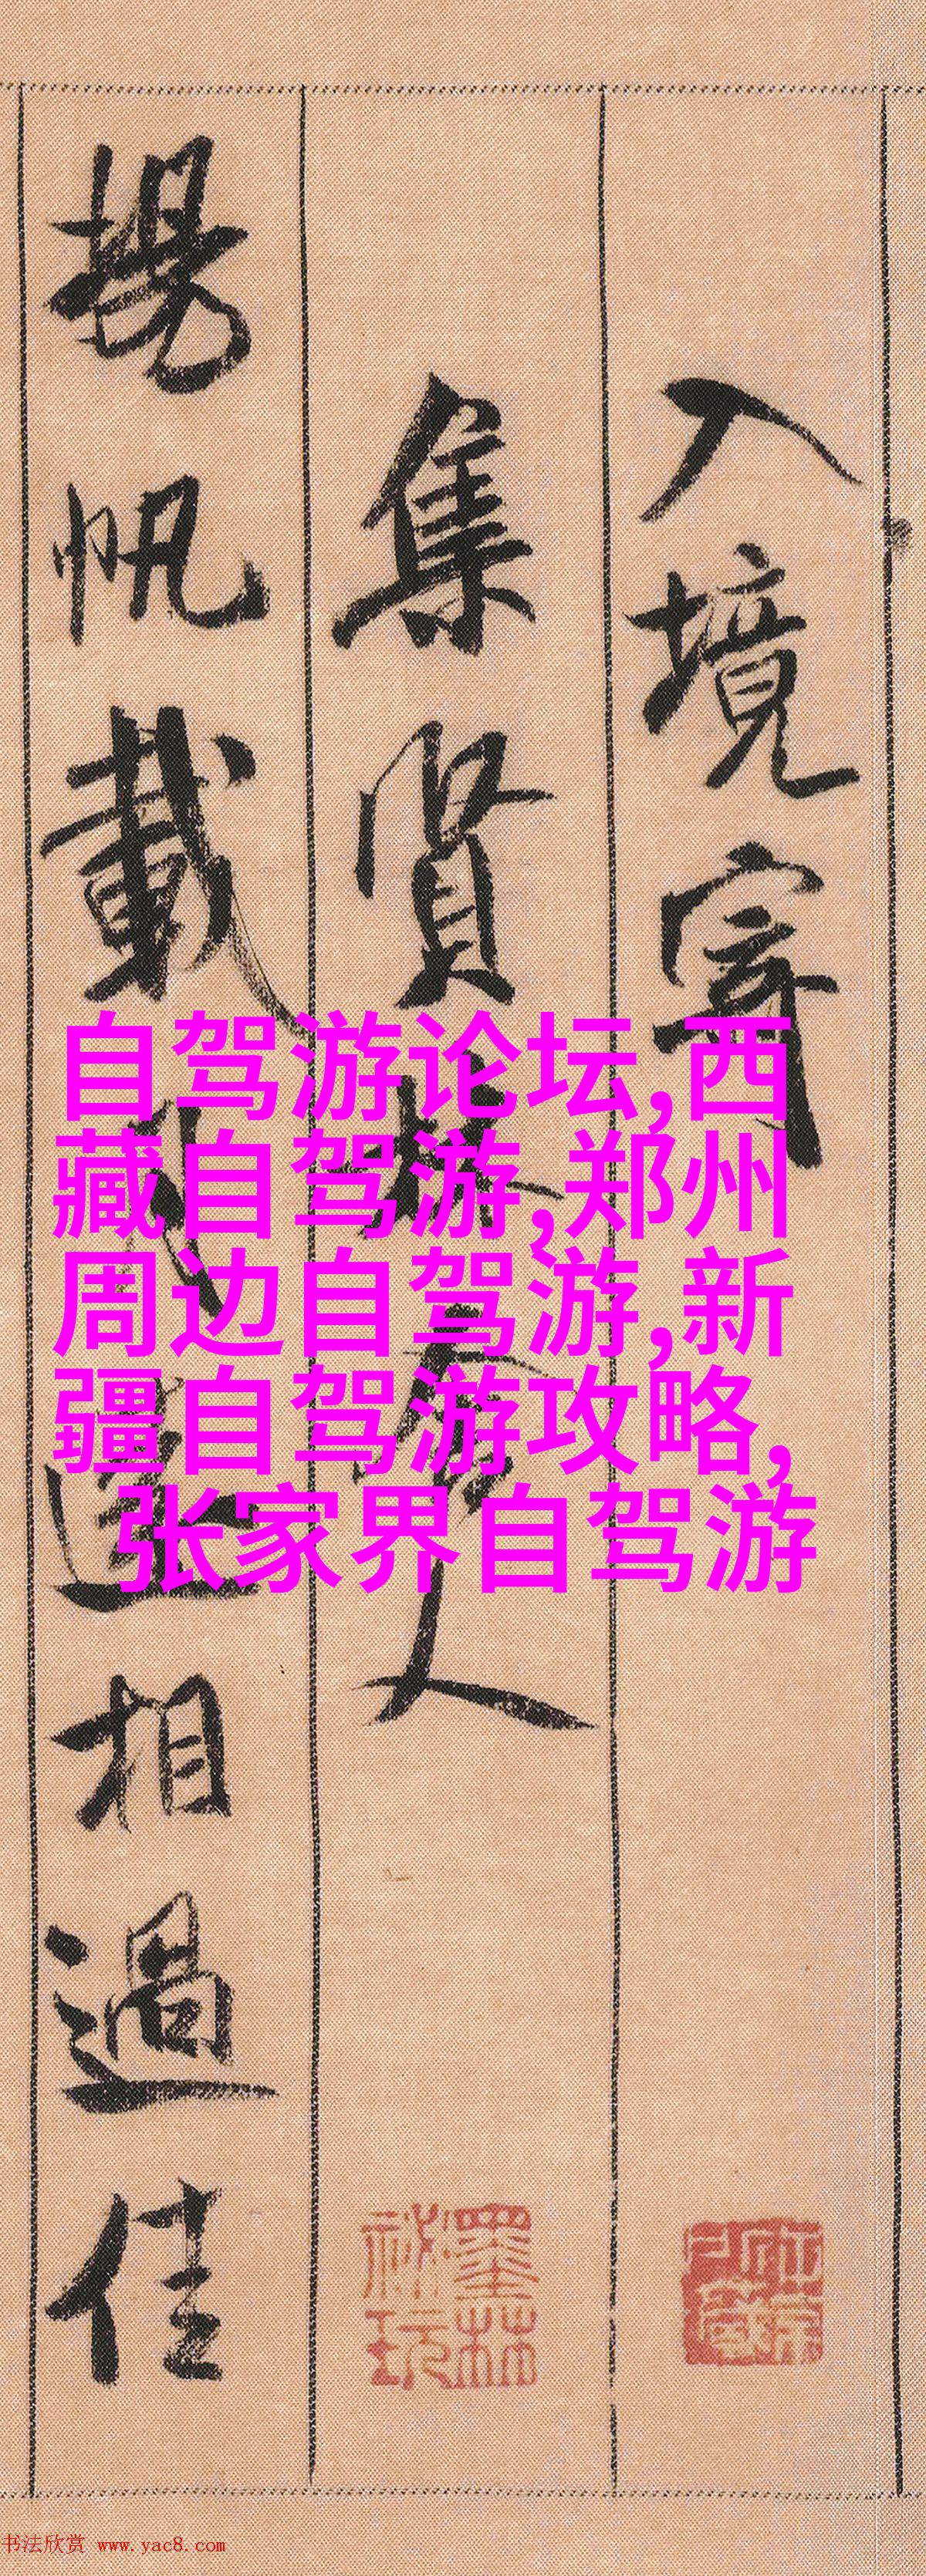 入境寄
集賢林舍人
揚帆載月遠相過佳
自驾游论坛,西
藏自驾游,郑州
周边自驾游,新
疆自驾游攻略,
张家界自驾游
墨林
秘玩
书法欣赏 www.yac8.com